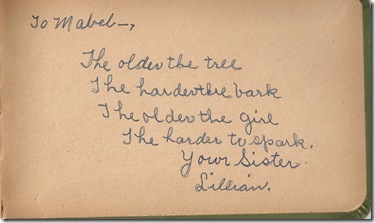 To Mabel—,
The older the tree
The harder the bark
The older the girl
The harder to spark.
Your Sister.
Lillian.